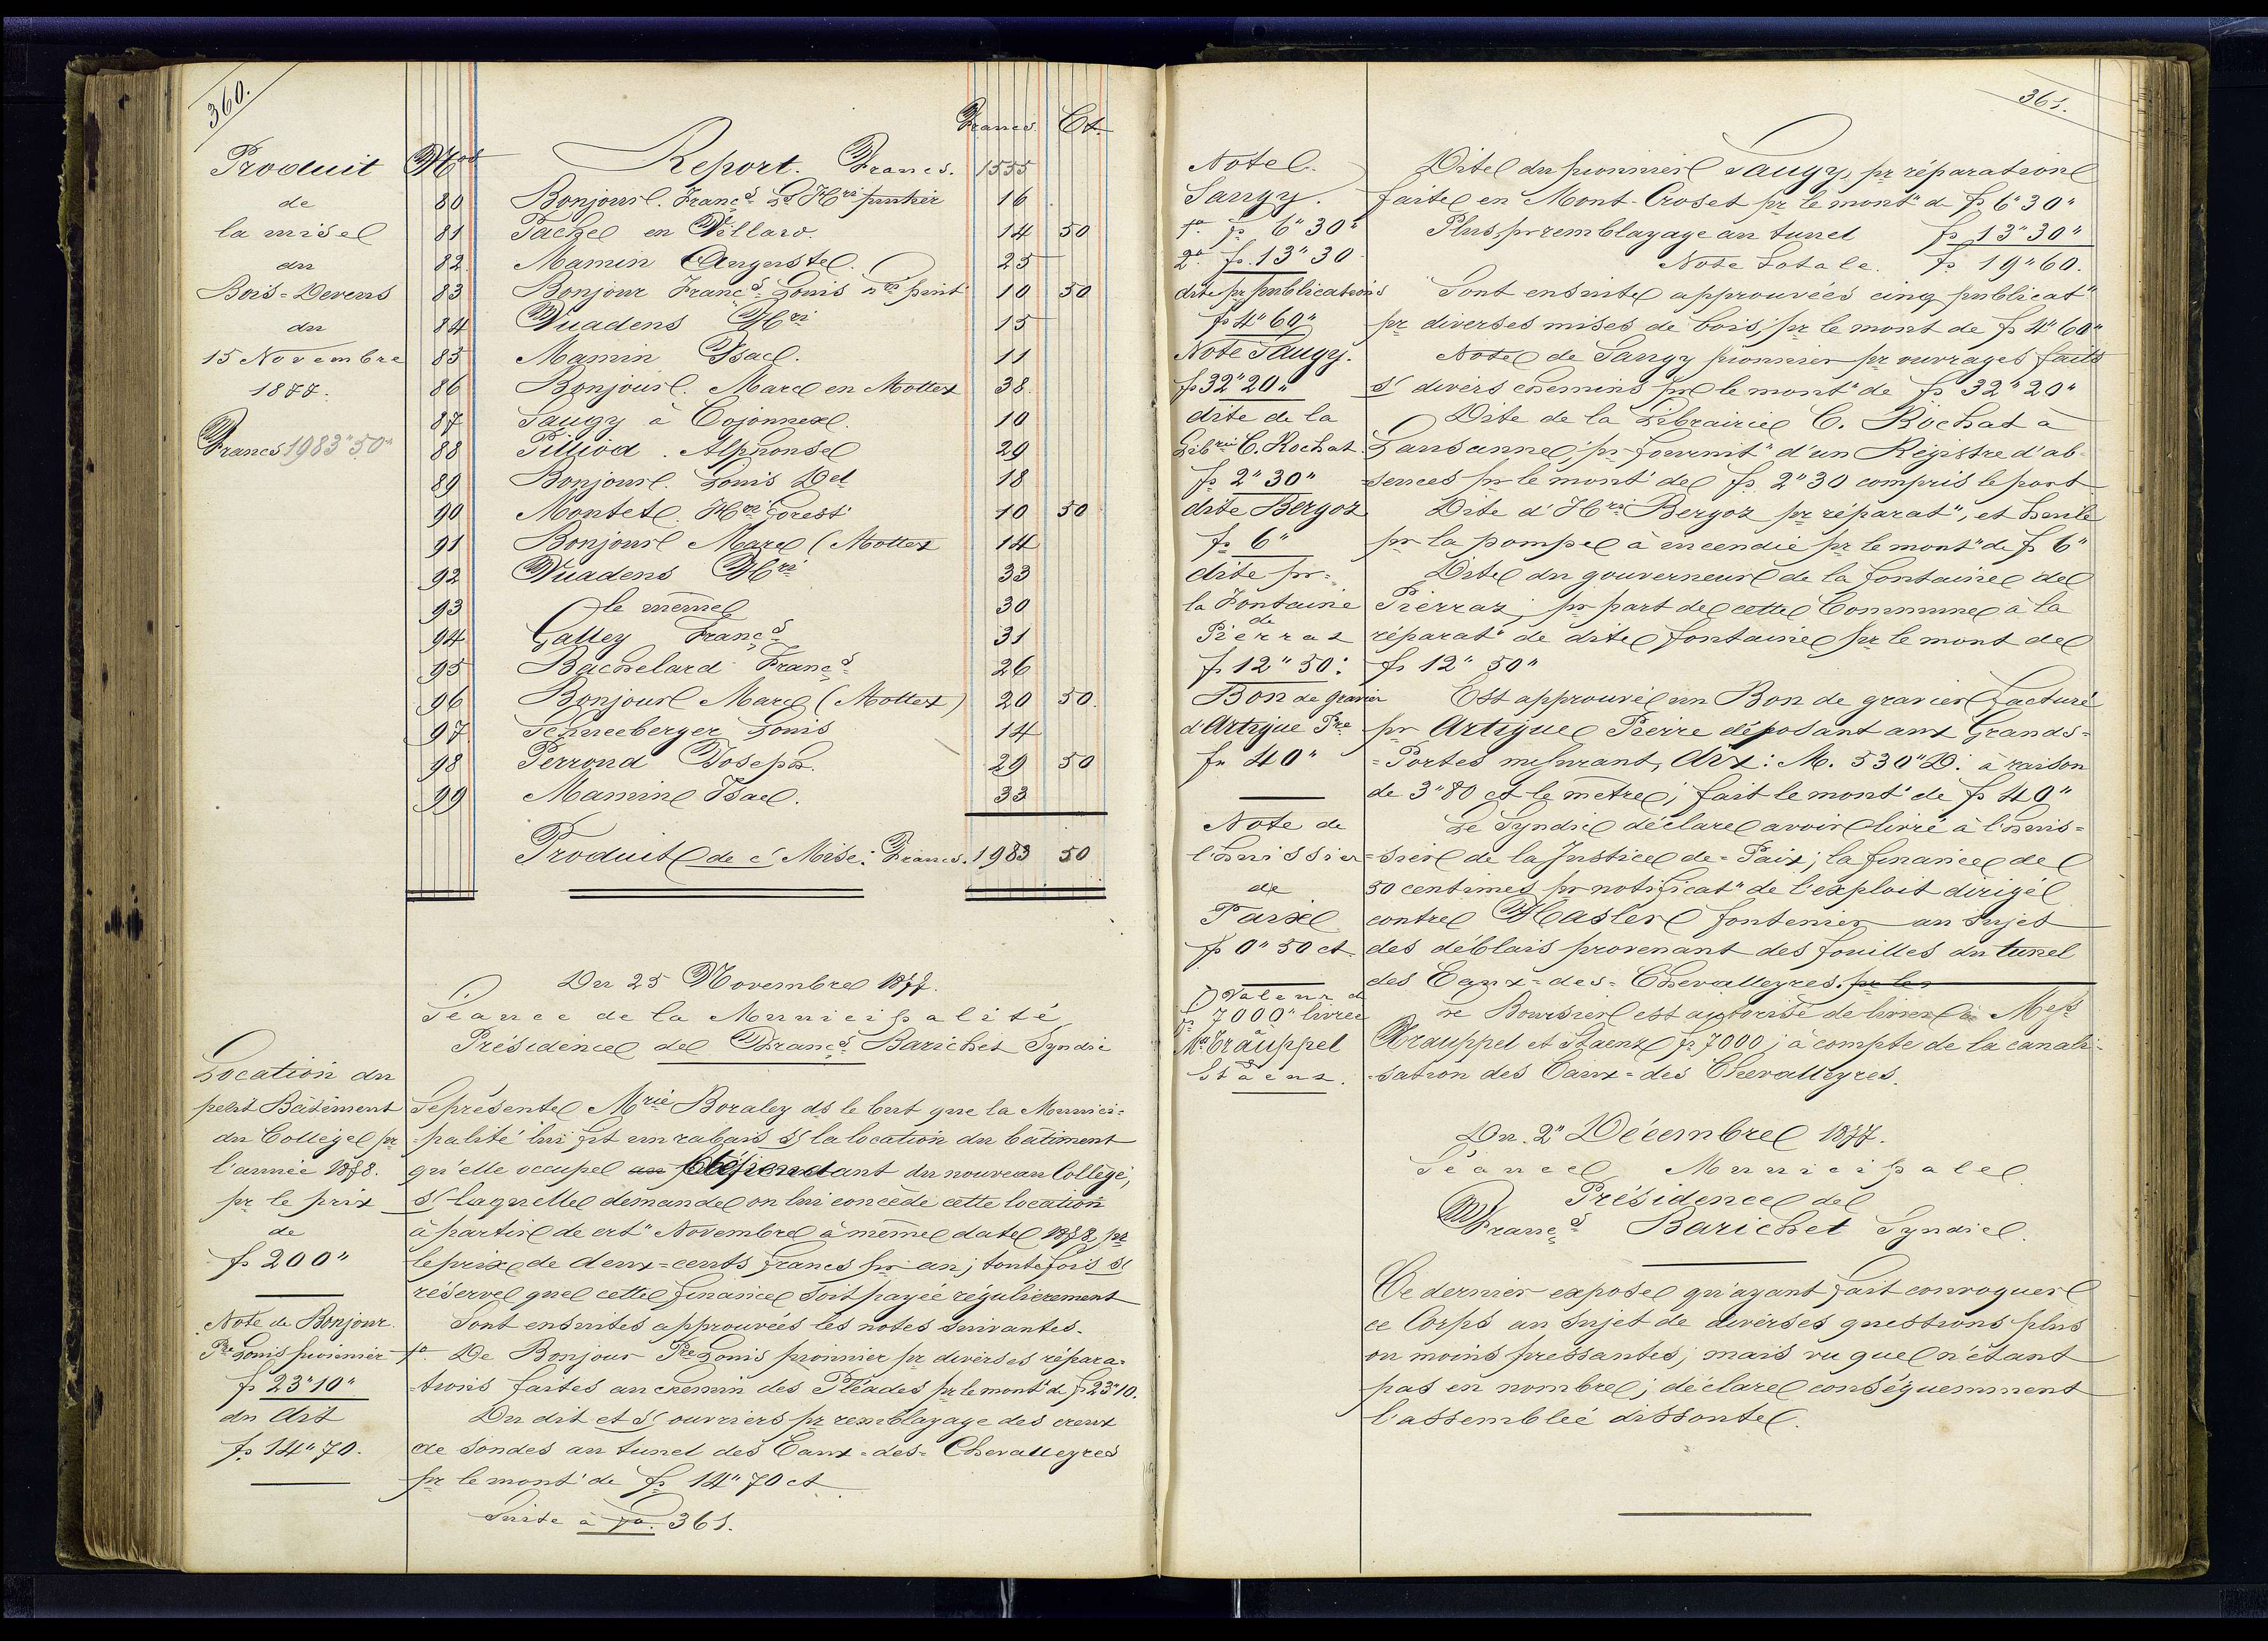 360.
Francs. Ct.
Produit Nos Report. Francs. 1555
de 80 Bonjour. Franc̰s Ls Hri 16
la mise 81 Tache en Villard. 14 50
du 82 Mamin Auguste. 25
Bois-Devens 83 Bonjour Francs Louis 10 50
du 84 Vuadens Hri 15
15 Novembre 85 Mamin Isac. 11
1877. 86 Bonjour. Marc en Mottex 38
87 Saugy à Cojonnex. 10
Francs 1983"50" 88 Pilliod. Alphonse 29
89 Bonjour. Louis Dd 18
90 Montet. Hri Forest 10 50
91 Bonjour Marc (Mottex 14
92 Vuadens Hri 33
93 le même 30
94 Galley Francs 31
95 Bachelard Francs 26
96 Bonjour Marc (Mottex) 20 50
97 Schneeberger Louis 14
98 Perroud Joseph. 29 50
99 Mamin Isac. 33
Produit de c' Mise: Francs. 1983 50
Du 25 Novembre 1877.
Séance de la Municipalité
Présidence de Francs Barichet Syndic
Location du
petit Bâtiment
du Collège pr
l'année 1878.
pr le prix
de
fs 200"
Se présente Mrie Boraley ds le but que la Munici=
=palité lui fit un rabais sr la location du bâtiment
qu'elle occupe au dépendant du nouveau Collège,
sr laquelle demande on lui concède cette location
à partir de crt" Novembre à même date 1878, pr
le prix de deux=cents francs pr an; toutefois sr
réserve que cette finance soit payée régulièrement
Note de Bonjour.
Pre Louis pionnier
fs 23"10"
du dit
fs 14"70.
Sont ensuites approuvées les notes suivantes.
1o. De Bonjour Pre Louis pionnier pr diverses répara=
=tions faites au chemin des Pléades pr le mont' de fs 23"10.
Du dit et sr ouvriers pr remblayage des creux
de sondes au tunel des Eaux-des-Chevalleyres
pr le mont' de fs 14"70 ct
Suite à fo. 361.
361.
Note.
Saugy.
1o. fs 6"30"
2o fs. 13"30
Dite du pionnier Saugy, pr réparation
faite en Mont-Croset pr le mont" de fs 6"30"
Plus, pr remblayage au tunel fs 13"30"
Note totale. fs 19"60.
dite pr publications
fs 4"60"
Sont ensuite approuvées cinq publicat"
pr diverses mises de bois, pr le mont de fs 4"60"
Note Saugy.
fs 32"20"
Note de Saugy pionnier pr ouvrages faits
sr divers chemins pr le mont" de fs 32"20"
dite de la
Librie C. Rochat.
fs 2"30"
Dite de la Librairie C. Rochat à
Lausanne, pr fournit" d'un Régistre d'ab-
sences pr le mont' de fs 2"30 compris le port
dite Bergoz
fs 6"
Dite d'Hri Bergoz pr réparat", et huile
pr la pompe à incendie pr le mont" de fs 6"
dite pr.
la Fontaine
de
Pierraz
fs 12"50:
Dite du gouverneur de la fontaine de
Pierraz, pr part de cette Commune à la
réparat" de dite fontaine pr le mont de
fs 12"50"
Bon de gravier
d'Artigue Pre
fs 40"
Est approuvé un Bon de gravier facturé
pr Artigue Pierre déposant aux Grands=
=Portes mesurant, Aix: M. 530"D: à raison
de 3"80 ct le mètre; fait le mont' de fs 40"
Note de
l'huissier
de
Paix
fs 0"50 ct
Le Syndic déclare avoir livré à l'huis=
=sier de la Justice de-Paix; la finance de
50 centimes pr notificat" de l'exploit dirigé
contre Hasler fontenier au sujet
des déblais provenant des fouilles du tunel
des Eaux-des-Chevalleyres. pr les
Valeur de
fs 7000" livrée
Mrs Träuppel
Stäenz.
Le Boursier est autorisé de livrer à Mess
Trauppel et Staenz fs 7000; à compte de la canali-
=sation des Eaux-des Chevalleyres.
Du. 2" Décembre 1877.
Séance Municipale
Présidence de
Francs Barichet Syndic.
Ce dernier expose qu'ayant fait convoquer
ce Corps au sujet de diverses questions plus
ou moins pressantes; mais vu que n'étant
pas en nombre; déclare conséquemment
l'assemblée dissoute.